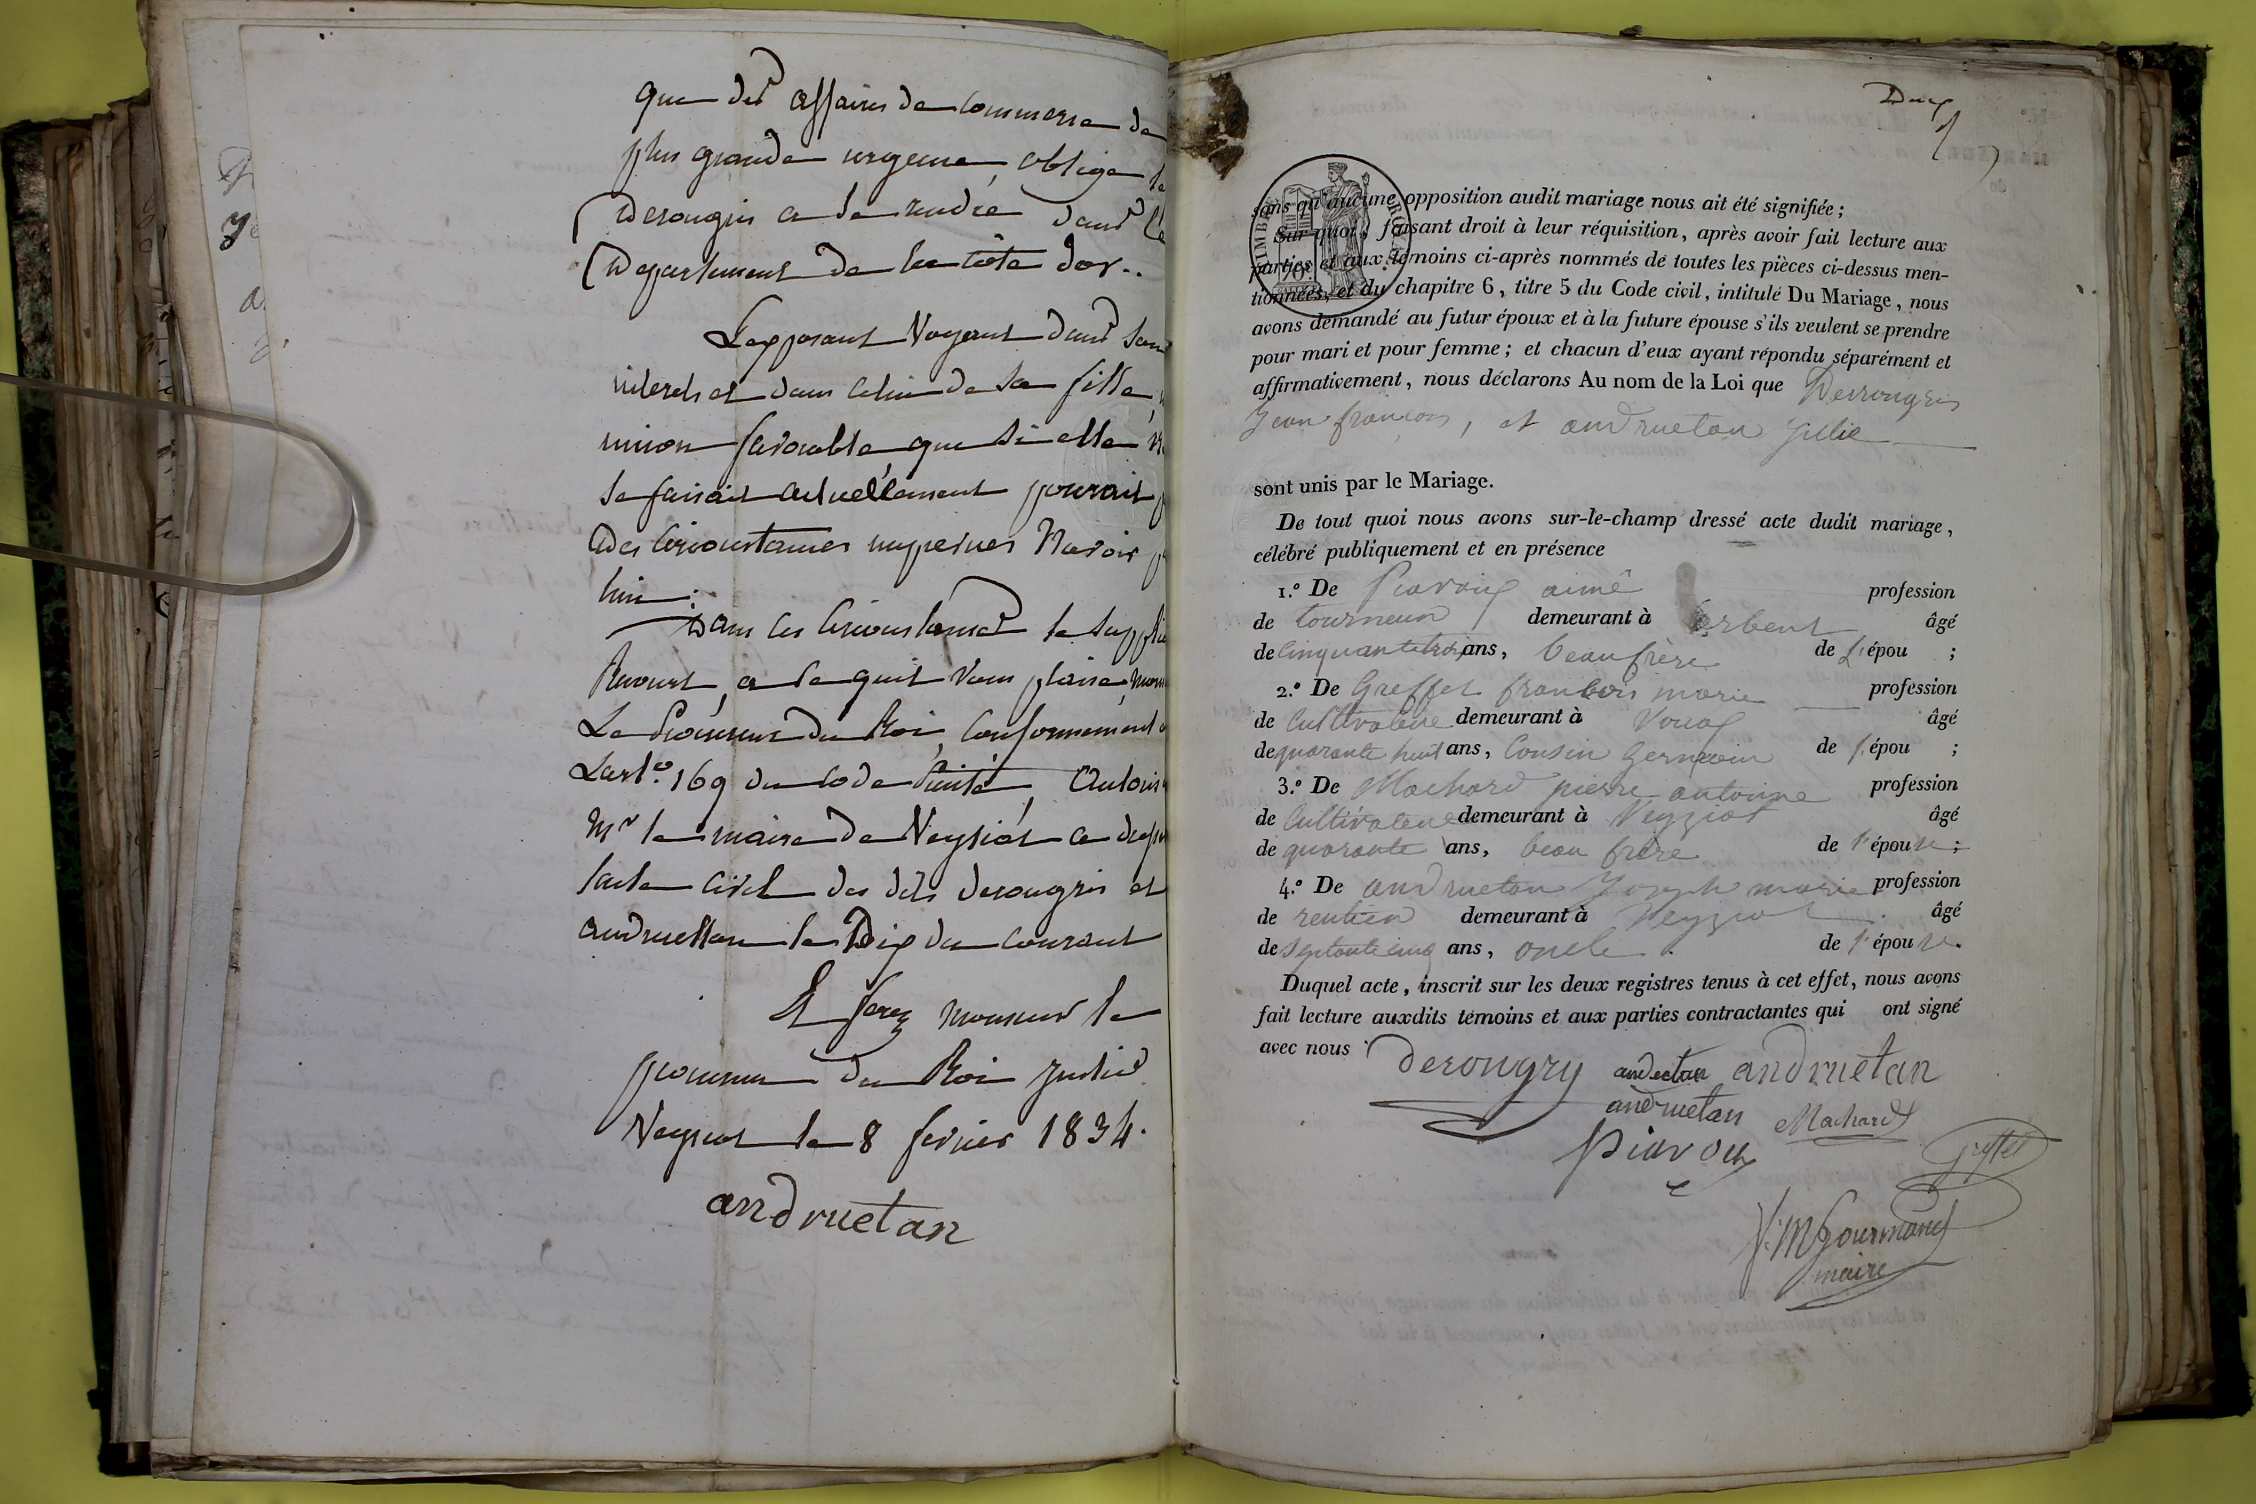 que des affaires de commerse de
plus grande urgence, oblige le
Derougris a se rendre dans le
Departement de la Côte dor..
Lexposant Voyent dans son
interets et dans celui de sa fille,
union favorable que si elle
se faisait actuellement pourait
des circonstances impreuves Navoir
lieu:
Dans ces Circonstances le
Recourt, a ce quil Vous plaise,
Le Procureur du Roi, Conformément
Lart.º 169 du Code Civile,
Mr le maire de Veyziat a
lacte Civil des dits derougris et
andruettan le Dix du courant
Et ferez monsieur le
procureur du Roi justice
Veyziat le 8 fevrier 1834.
andruetan
Deux
TIMBRE ROYAL
70
sans qu'aucune opposition audit mariage nous ait été signifiée;
Sur quoi, faisant droit à leur réquisition, après avoir fait lecture aux
parties et aux témoins ci-après nommés de toutes les pièces ci-dessus men-
tionnées, et du chapitre 6, titre 5 du Code civil, intitulé Du Mariage, nous
avons demandé au futur époux et à la future épouse s'ils veulent se prendre
pour mari et pour femme; et chacun d'eux ayant répondu séparément et
affirmativement, nous déclarons Au nom de la Loi que Derrougris
Jean françois, et andruetan Julie
sont unis par le Mariage.
De tout quoi nous avons sur-le-champ dressé acte dudit mariage,
célébré publiquement et en présence
1.º De Piaroux aimé profession
de tourneur demeurant à Arbent âgé
de Cinquante trois ans, beaufrère de l'épou ;
2.º De Greffet francois marie profession
de Cultivateur demeurant à Vouaf âgé
de quarante huit ans, Cousin Germain de l'épou ;
3.º De Machard pierre antoine profession
de Cultivateur demeurant à Veyziat âgé
de quarante ans, beau frère de l'épouse;
4.º De andruetan Joseph marie profession
de rentier demeurant à Veyziat âgé
de septante cinq ans, oncle de l'épouse.
Duquel acte, inscrit sur les deux registres tenus à cet effet, nous avons
fait lecture auxdits témoins et aux parties contractantes qui ont signé
avec nous
derougry andectan andruetan
andruetan Machard
Piaroux Greffet
J. M Gourmand
maire